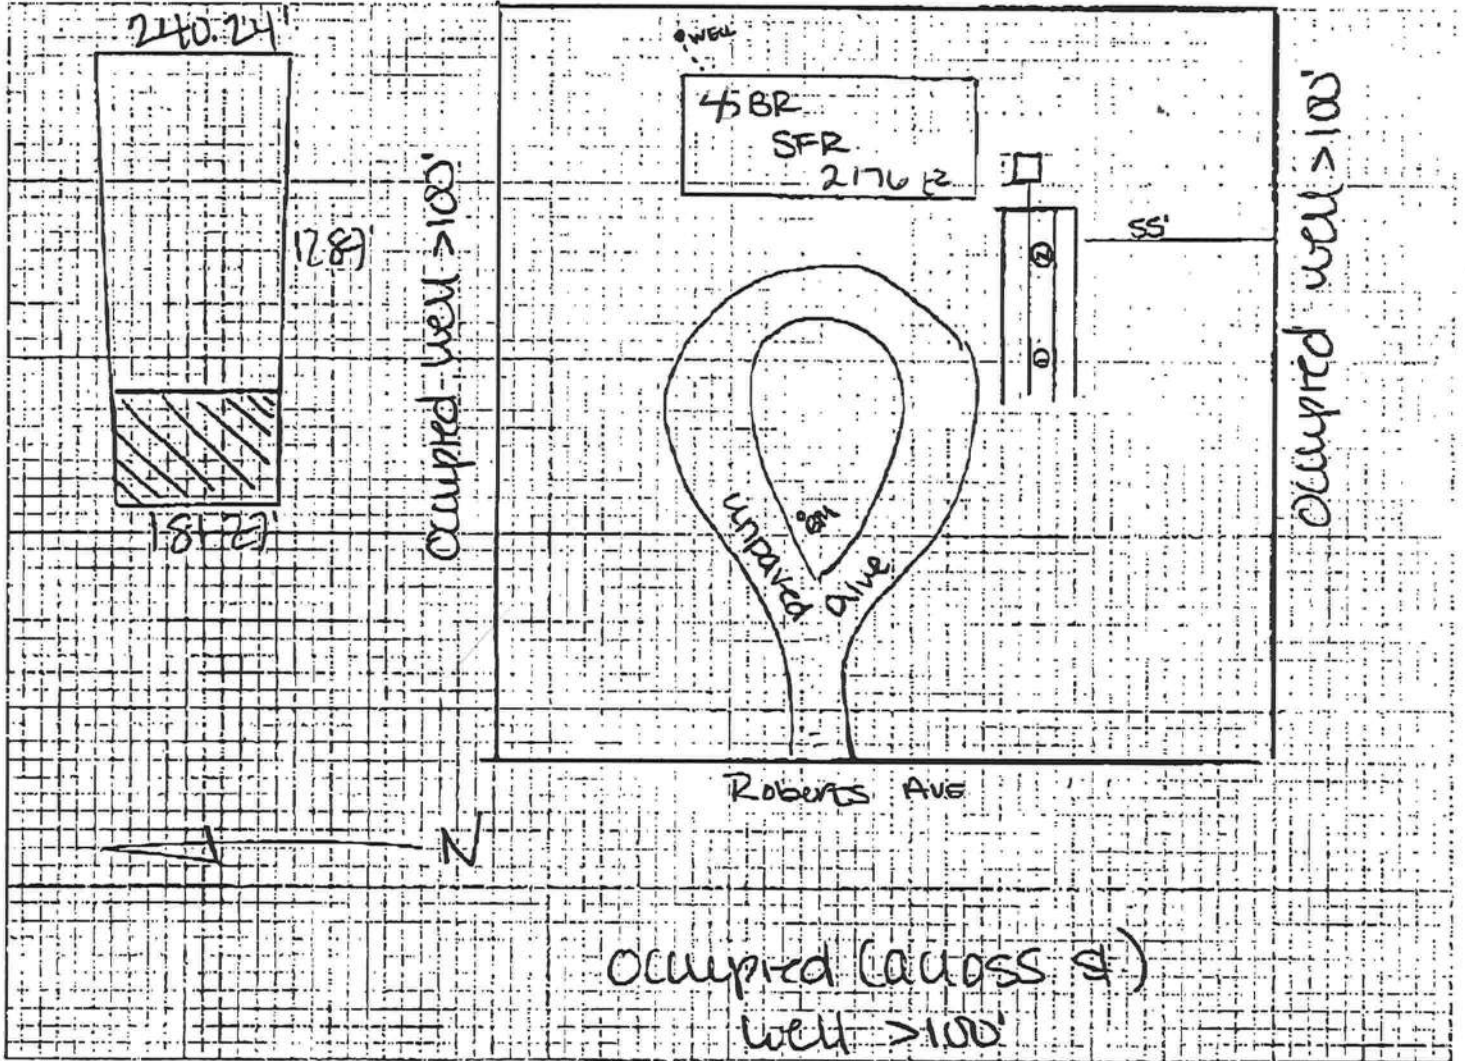 240.24'
1287'
181.27'
Occupied well >100'
WELL
BR
SFR
2176 ft²
55'
2
1
BM
unpaved
drive
Occupied well >100'
Roberts Ave
N
occupied (across st)
well >100'